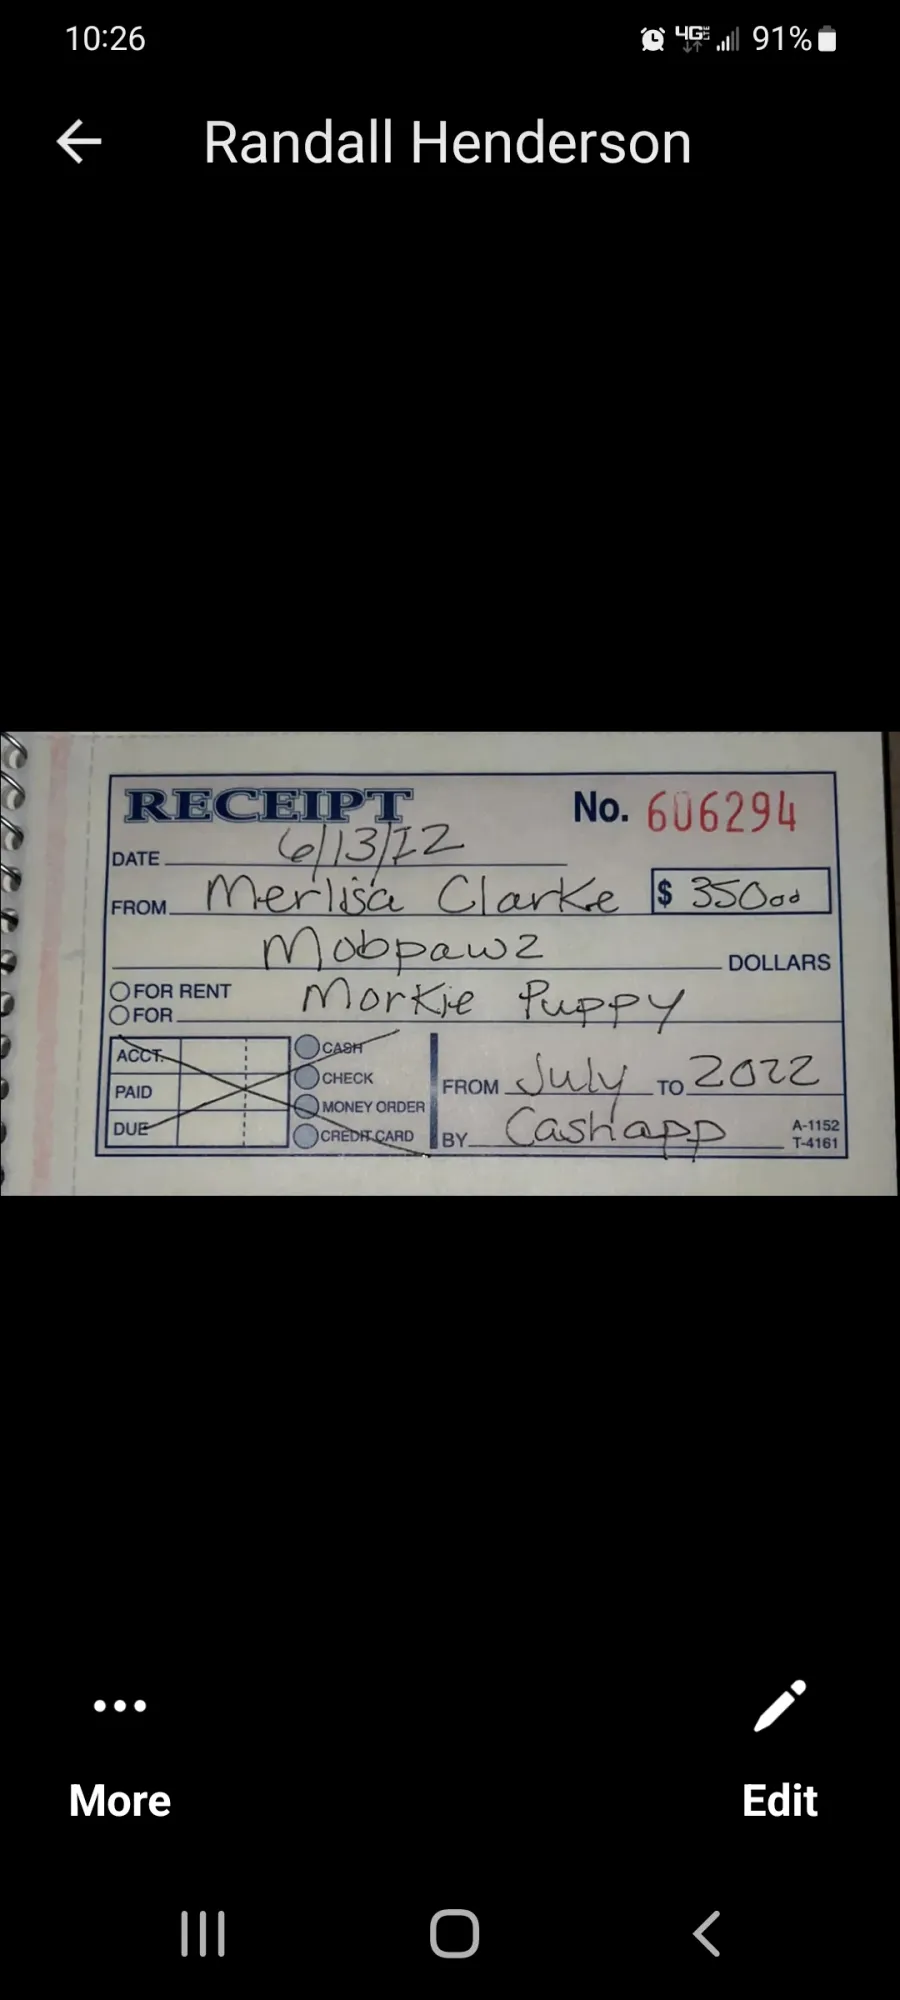 10:26
4G LTE 91%
Randall Henderson
RECEIPT No. 606294
DATE 6/13/22
FROM Merlisa Clarke $ 350.00
Mobpawz DOLLARS
FOR RENT
FOR Morkie Puppy
ACCT.
PAID
DUE
CASH
CHECK
MONEY ORDER
CREDIT CARD
FROM July TO 2022
BY Cashapp
A-1152
T-4161
More
Edit